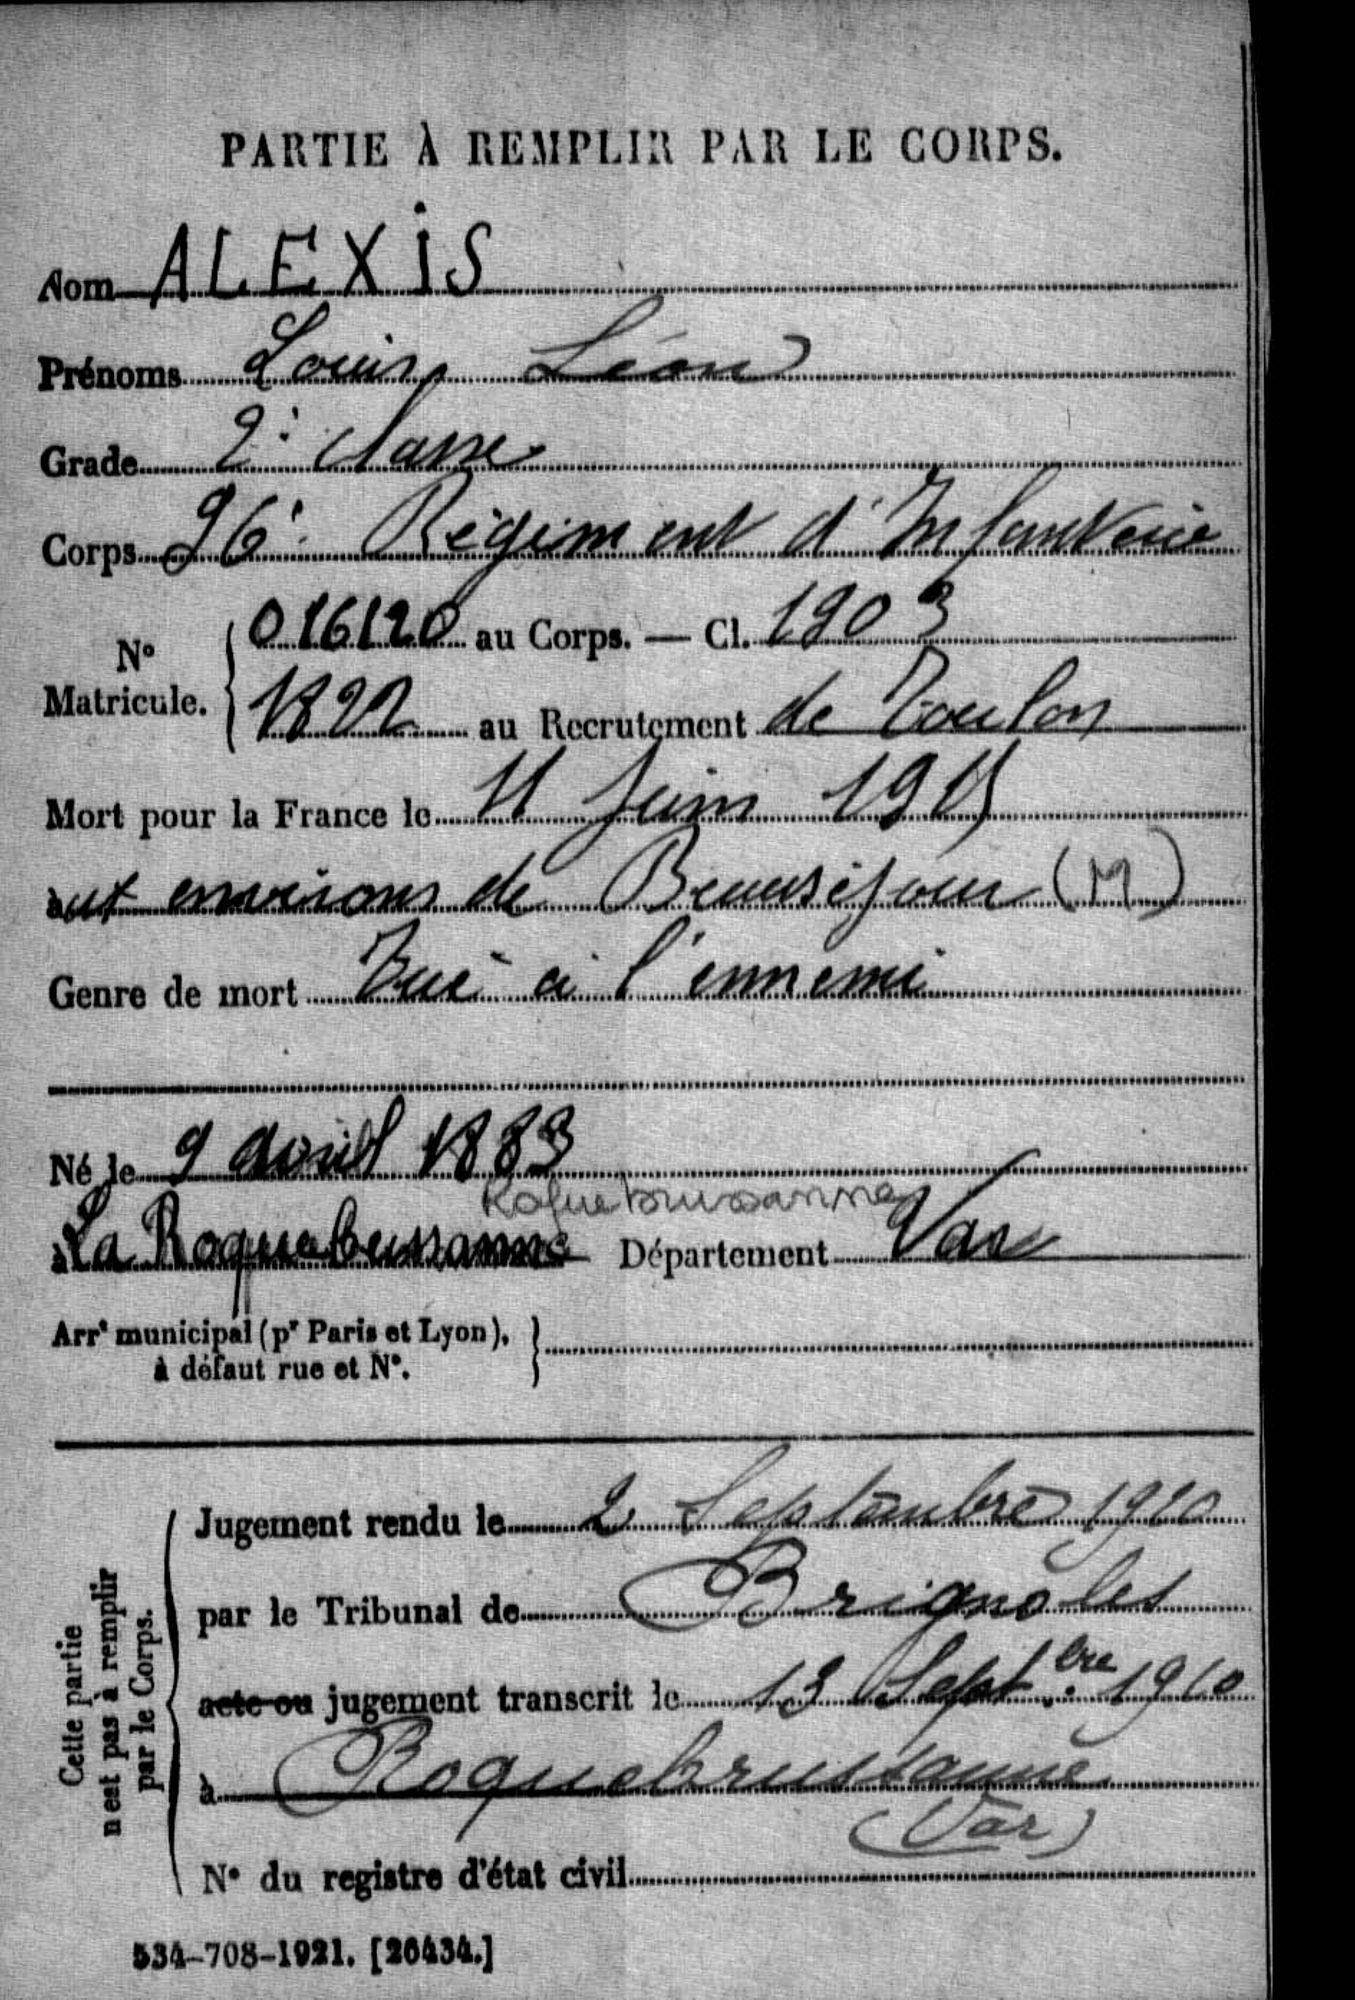 PARTIE À REMPLIR PAR LE CORPS.
Nom ALEXIS
Prénoms Louis Léon
Grade 2e classe
Corps 96e Régiment d'Infanterie
N° Matricule. 016120 au Corps. — Cl. 1903
1822 au Recrutement de Toulon
Mort pour la France le 11 Juin 1915
aux environs de Beauséjour (M)
Genre de mort Tué à l'ennemi
Né le 9 avril 1883
Roquebrussanne
à La Roquebussanne Département Var
Arrt municipal (pr Paris et Lyon),
à défaut rue et N°.
Cette partie
n'est pas à remplir
par le Corps.
Jugement rendu le 2 Septembre 1920
par le Tribunal de Brignoles
acte ou jugement transcrit le 13 Sept.bre 1920
à Roquebrussanne
(Var)
N° du registre d'état civil
534-708-1921. [26434.]